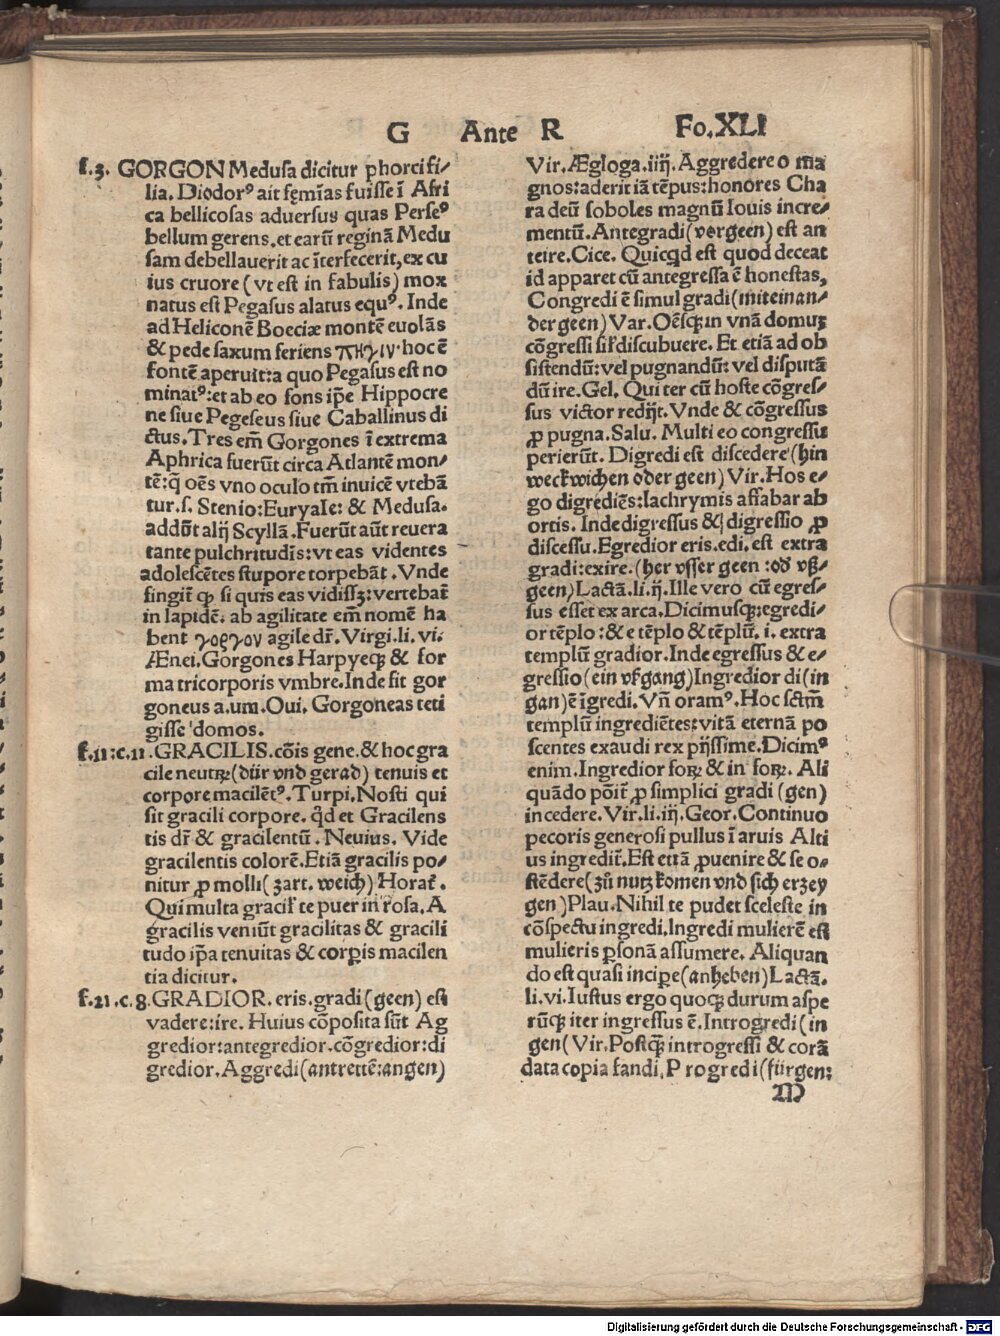 G Ante R Fo.XLI
f.3. GORGON Medusa dicitur phorci fi⸗
lia. Diodorꝰ ait fęmīas fuisse ī Afri
ca bellicosas aduersus quas Perseꝰ
bellum gerens, et earū reginā Medu
sam debellauerit ac īterfecerit, ex cu
ius cruore (vt est in fabulis) mox
natus est Pegasus alatus equꝰ. Inde
ad Heliconē Boeciæ montē euolās
& pede saxum feriens πηγὶν· hoc ē
fontē aperuit: a quo Pegasus est no
minatꝰ: et ab eo fons ip̄e Hippocre
ne siue Pegeseus siue Caballinus di
ctus. Tres em̄ Gorgones ī extrema
Aphrica fuerūt circa Atlantē mon⸗
tē: q̄ oēs vno oculo tm̄ inuicē vtebā
tur. s. Stenio: Euryale: & Medusa.
addūt alij Scyllā. Fuerūt aūt reuera
tante pulchritudīs: vt eas videntes
adolescētes stupore torpebāt. Vnde
fingūt ꝙ si quis eas vidissꝫ: vertebat̄
in lapidē. ab agilitate em̄ nomē ha
bent γοργον agile dr̄. Virgi. li. vi.
Ænei. Gorgones Harpyeqꝫ & for
ma tricorporis vmbre. Inde fit gor
goneus a. um. Oui. Gorgoneas teti
gisse domos.
f.11: c.11. GRACILIS. cōis gene. & hoc gra
cile neutrꝝ (dür vnd gerad) tenuis et
corpore macilētꝰ. Turpi. Nosti qui
sit gracili corpore. qd̄ et Gracilens
tis dr̄ & gracilentū. Neuius. Vide
gracilentis colorē. Etiā gracilis po⸗
nitur ꝓ molli (zart. weich) Horat̄.
Qui multa gracil̄ te puer in rosa. A
gracilis veniūt gracilitas & gracili
tudo ip̄a tenuitas & corꝑis macilen
tia dicitur.
f.21. c. 8. GRADIOR. eris. gradi (geen) est
vadere: ire. Huius cōposita sūt Ag
gredior: antegredior. cōgredior: di
gredior. Aggredi (antrettē: angen)
Vir. Ægloga. iiij. Aggredere o ma
gnos: aderit iā tēpus: honores Cha
ra deū soboles magnū Iouis incre⸗
mentū. Antegradi (vorgeen) est an
teire. Cice. Quicqd est quod deceat
id apparet cū antegressa ē honestas,
Congredi ē simul gradi (miteinan⸗
der geen) Var. Oēsqꝫ in vnā domuꝫ
cōgressi sil̄ discubuere. Et etiā ad ob
sistendū: vel pugnandū: vel disputā
dū ire. Gel. Qui ter cū hoste cōgres⸗
sus victor redijt. Vnde & cōgressus
ꝓ pugna. Salu. Multi eo congressu
perierūt. Digredi est discedere (hin
weck wichen oder geen) Vir. Hos e⸗
go digrediēs: lachrymis affabar ab
ortis. Inde digressus & digressio ꝓ
discessu. Egredior eris. edi. est extra
gradi: exire. (her vsser geen: od vß⸗
geen) Lactā. li. ij. Ille vero cū egres⸗
sus esset ex arca. Dicimusqꝫ: egredi⸗
or tēplo: & e tēplo & tēplū. i. extra
templū gradior. Inde egressus & e⸗
gressio (ein vßgang) Ingredior di (in
gan) ē īgredi. Vn̄ oramꝰ. Hoc sctm̄
templū ingrediētes: vitā eternā po
scentes exaudi rex pijssime. Dicimꝰ
enim. Ingredior forꝝ & in forꝝ. Ali
quādo pōit̄ ꝓ simplici gradi (gen)
incedere. Vir. li. iij. Geor. Continuo
pecoris generosi pullus ī aruis Alti
us ingredit̄. Est etiā ꝓuenire & se o⸗
stēdere (zů nutz komen vnd sich erzey
gen) Plau. Nihil te pudet sceleste in
cōspectu ingredi. Ingredi mulierē est
mulieris ꝑsonā assumere. Aliquan
do est quasi incipe (anheben) Lactā.
li. vi. Iustus ergo quoqꝫ durum aspe
rūqꝫ iter ingressus ē. Introgredi (in
gen (Vir. Postqꝫ introgressi & corā
data copia fandi. Progredi (fürgen:
M
Digitalisierung gefördert durch die Deutsche Forschungsgemeinschaft - DFG